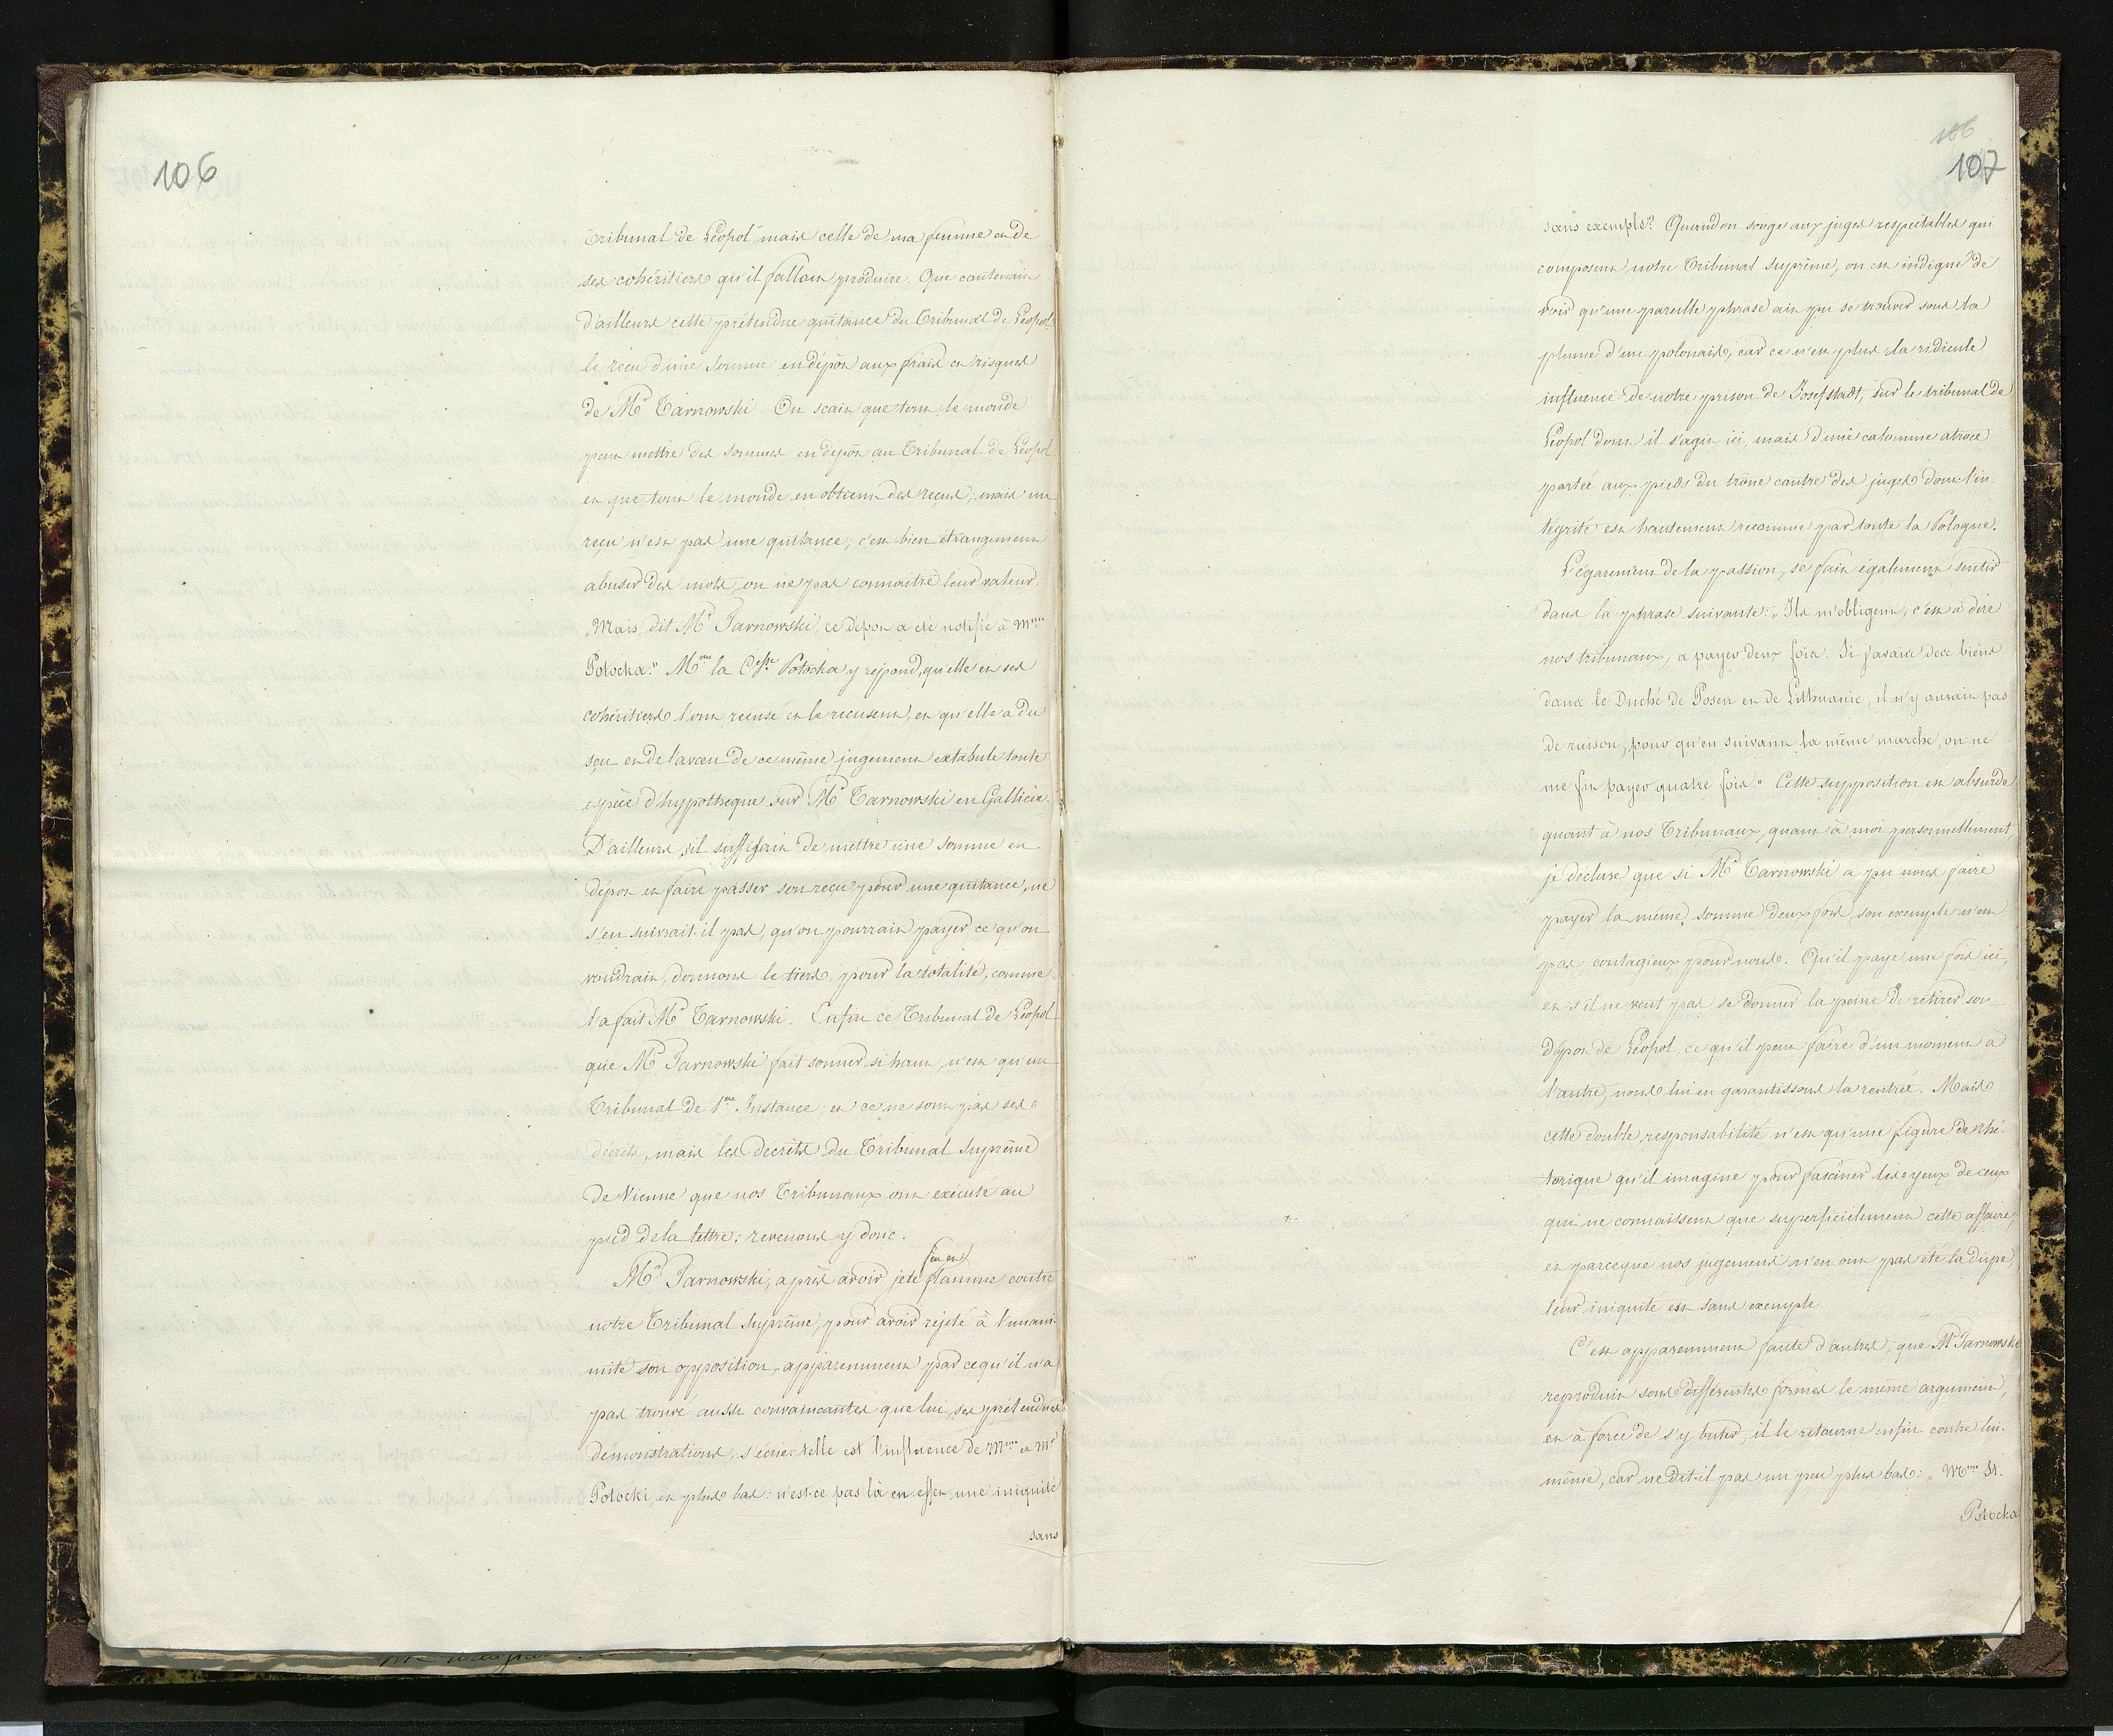 106
Tribunal de Léopol mais celle de ma femme et de
ses cohéritiers qu'il fallait produire. Que contenait
d'ailleurs cette prétendue quitance du Tribunal de Léopol
le reçu d'une somme en dépôt aux frais et risques
de Mr Tarnowski. On scait que tout le monde
peut mettre des sommes en dépôt au Tribunal de Léopol
et que tout le monde en obtient des reçus; mais un
reçu n'est pas une quitance; c'est bien étrangement
abuser des mots ou ne pas connaitre leur valeur.
„Mais, dit Mr Tarnowski, ce dépot a été notifié à Mme
Potocka." Mme la Csse Potocka y répond, qu'elle et ses
cohéritiers l'ont recusé et le recusent, et qu'elle a du
sçu et de l'aveu de ce même jugement extabulé toute
espèce d'hypotheque sur Mr Tarnowski en Gallicie.
D'ailleurs, s'il suffisait de mettre une somme en
dépot et faire passer son reçu pour une quitance, ne
s'en suivrait-il pas, qu'on pourrait payer ce qu'on
voudrait, donnons le tiers pour la totalité, comme
l'a fait Mr Tarnowski. Enfin ce Tribunal de Léopol
que Mr Tarnowski fait sonner si haut, n'est qu'un
Tribunal de 1re Instance; et ce ne sont pas ses
décrêts, mais les decrêts du Tribunal Suprême
de Vienne que nos Tribunaux ont exécuté au
pied de la lettre: revenons y donc.
feu et
Mr Tarnowski, après avoir jeté flamme contre
notre Tribunal Suprême, pour avoir rejeté à l'unani-
mité son opposition, apparemment parcequ'il n'a
pas trouvé aussi convaincantes que lui, ses prétendues
demonstrations, s'écrie: telle est l'influence de Mme et Mr
Potocki, et plus bas: n'est-ce pas là en effet une iniquité
sans
106
107
sans exemple? Quand on songe aux juges respectables qui
composent notre Tribunal Suprême, on est indigné de
voir qu'une pareille phrase ait pu se trouver sous la
plume d'un polonais, car ce n'est plus la ridicule
influence de notre prison de Josefstadt, sur le tribunal de
Léopol dont il s'agit ici, mais d'une calomnie atroce
portée aux pieds du trône contre des juges dont l'in-
tégrité est hautement reconnue par toute la Pologne.
L'égarement de la passion, se fait également sentir
dans la phrase suivante: „Ils m'obligent, c'est à dire
nos tribunaux, a payer deux fois. Si j'avais des biens
dans le Duché de Posen et de Lithuanie, il n'y aurait pas
de raison, pour qu'en suivant la même marche, on ne
me fit payer quatre fois." Cette supposition est absurde
quant à nos Tribunaux, quant à moi personnellement,
je déclare que si Mr Tarnowski a pu nous faire
payer la même somme deux fois, son exemple n'est
pas contagieux pour nous. Qu'il paye une fois ici,
et s'il ne veut pas se donner la peine de retirer son
dépot de Léopol, ce qu'il peut faire d'un moment à
l'autre, nous lui en garantissons la rentrée. Mais
cette double responsabilité n'est qu'une figure de rhé-
torique qu'il imagine pour fasciner les yeux de ceux
qui ne connaissent que superficielement cette affaire,
et parceque nos jugemens n'en ont pas été la dupe,
leur iniquité est sans exemple.
C'est apparemment faute d'autres, que Mr Tarnowski
reproduit sous différentes formes le même argument,
et à force de s'y buter, il le retourne enfin contre lui-
même, car ne dit-il pas un peu plus bas: „Mme St.
Potocka